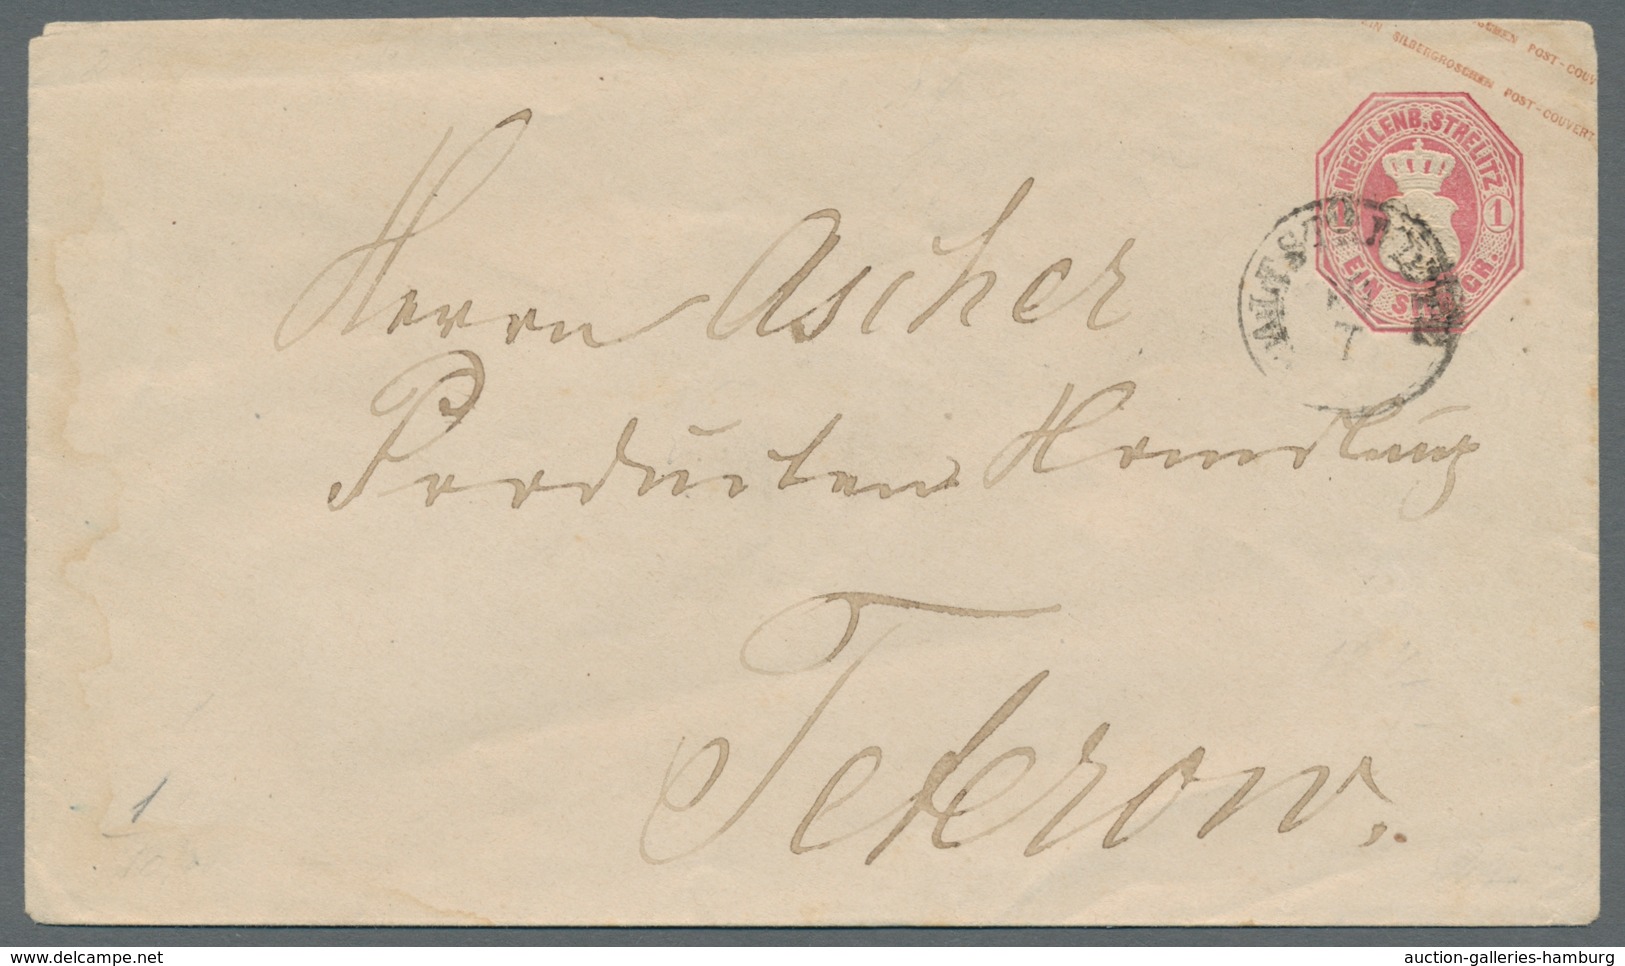 EIN SILBERGROSCHEN POST-COUVERT
GROSCHEN POST-COUV
MECKLENB. STRELITZ
1 1
EIN SILBGR.
7
Herrn Ascher
Producten Handlung
Teterow.
1
delcampe.net
auction-galleries-hamburg